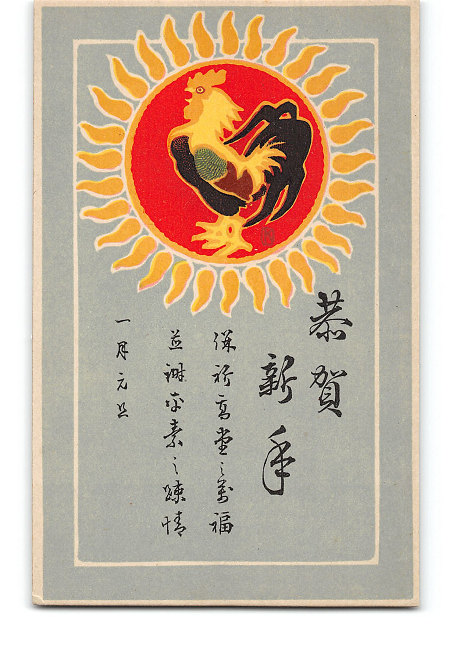 恭賀
新年
謹祈高堂之万福
並謝平素之疎情
一月元旦